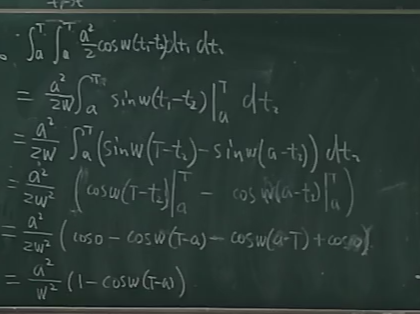 ∫_a^T ∫_a^T a²/2 cosw(t₁-t₂)dt₁ dt₂
= a²/2w ∫_a^T sinw(t₁-t₂)|_a^T dt₂
= a²/2w ∫_a^T (sinw(T-t₂)-sinw(a-t₂)) dt₂
= a²/2w² (cosw(T-t₂)|_a^T - cosw(a-t₂)|_a^T)
= a²/2w² (cos0 - cosw(T-a) - cosw(a-T) + cos0)
= a²/w² (1-cosw(T-a))